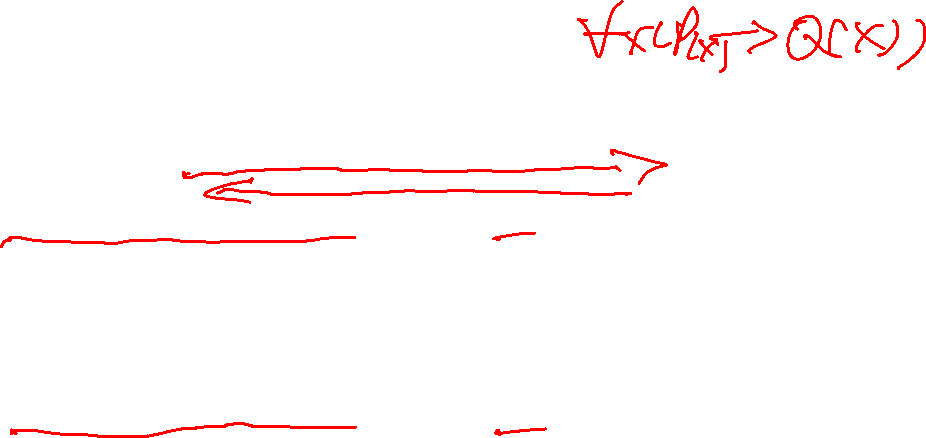 ∀x(P(x)→Q(x))